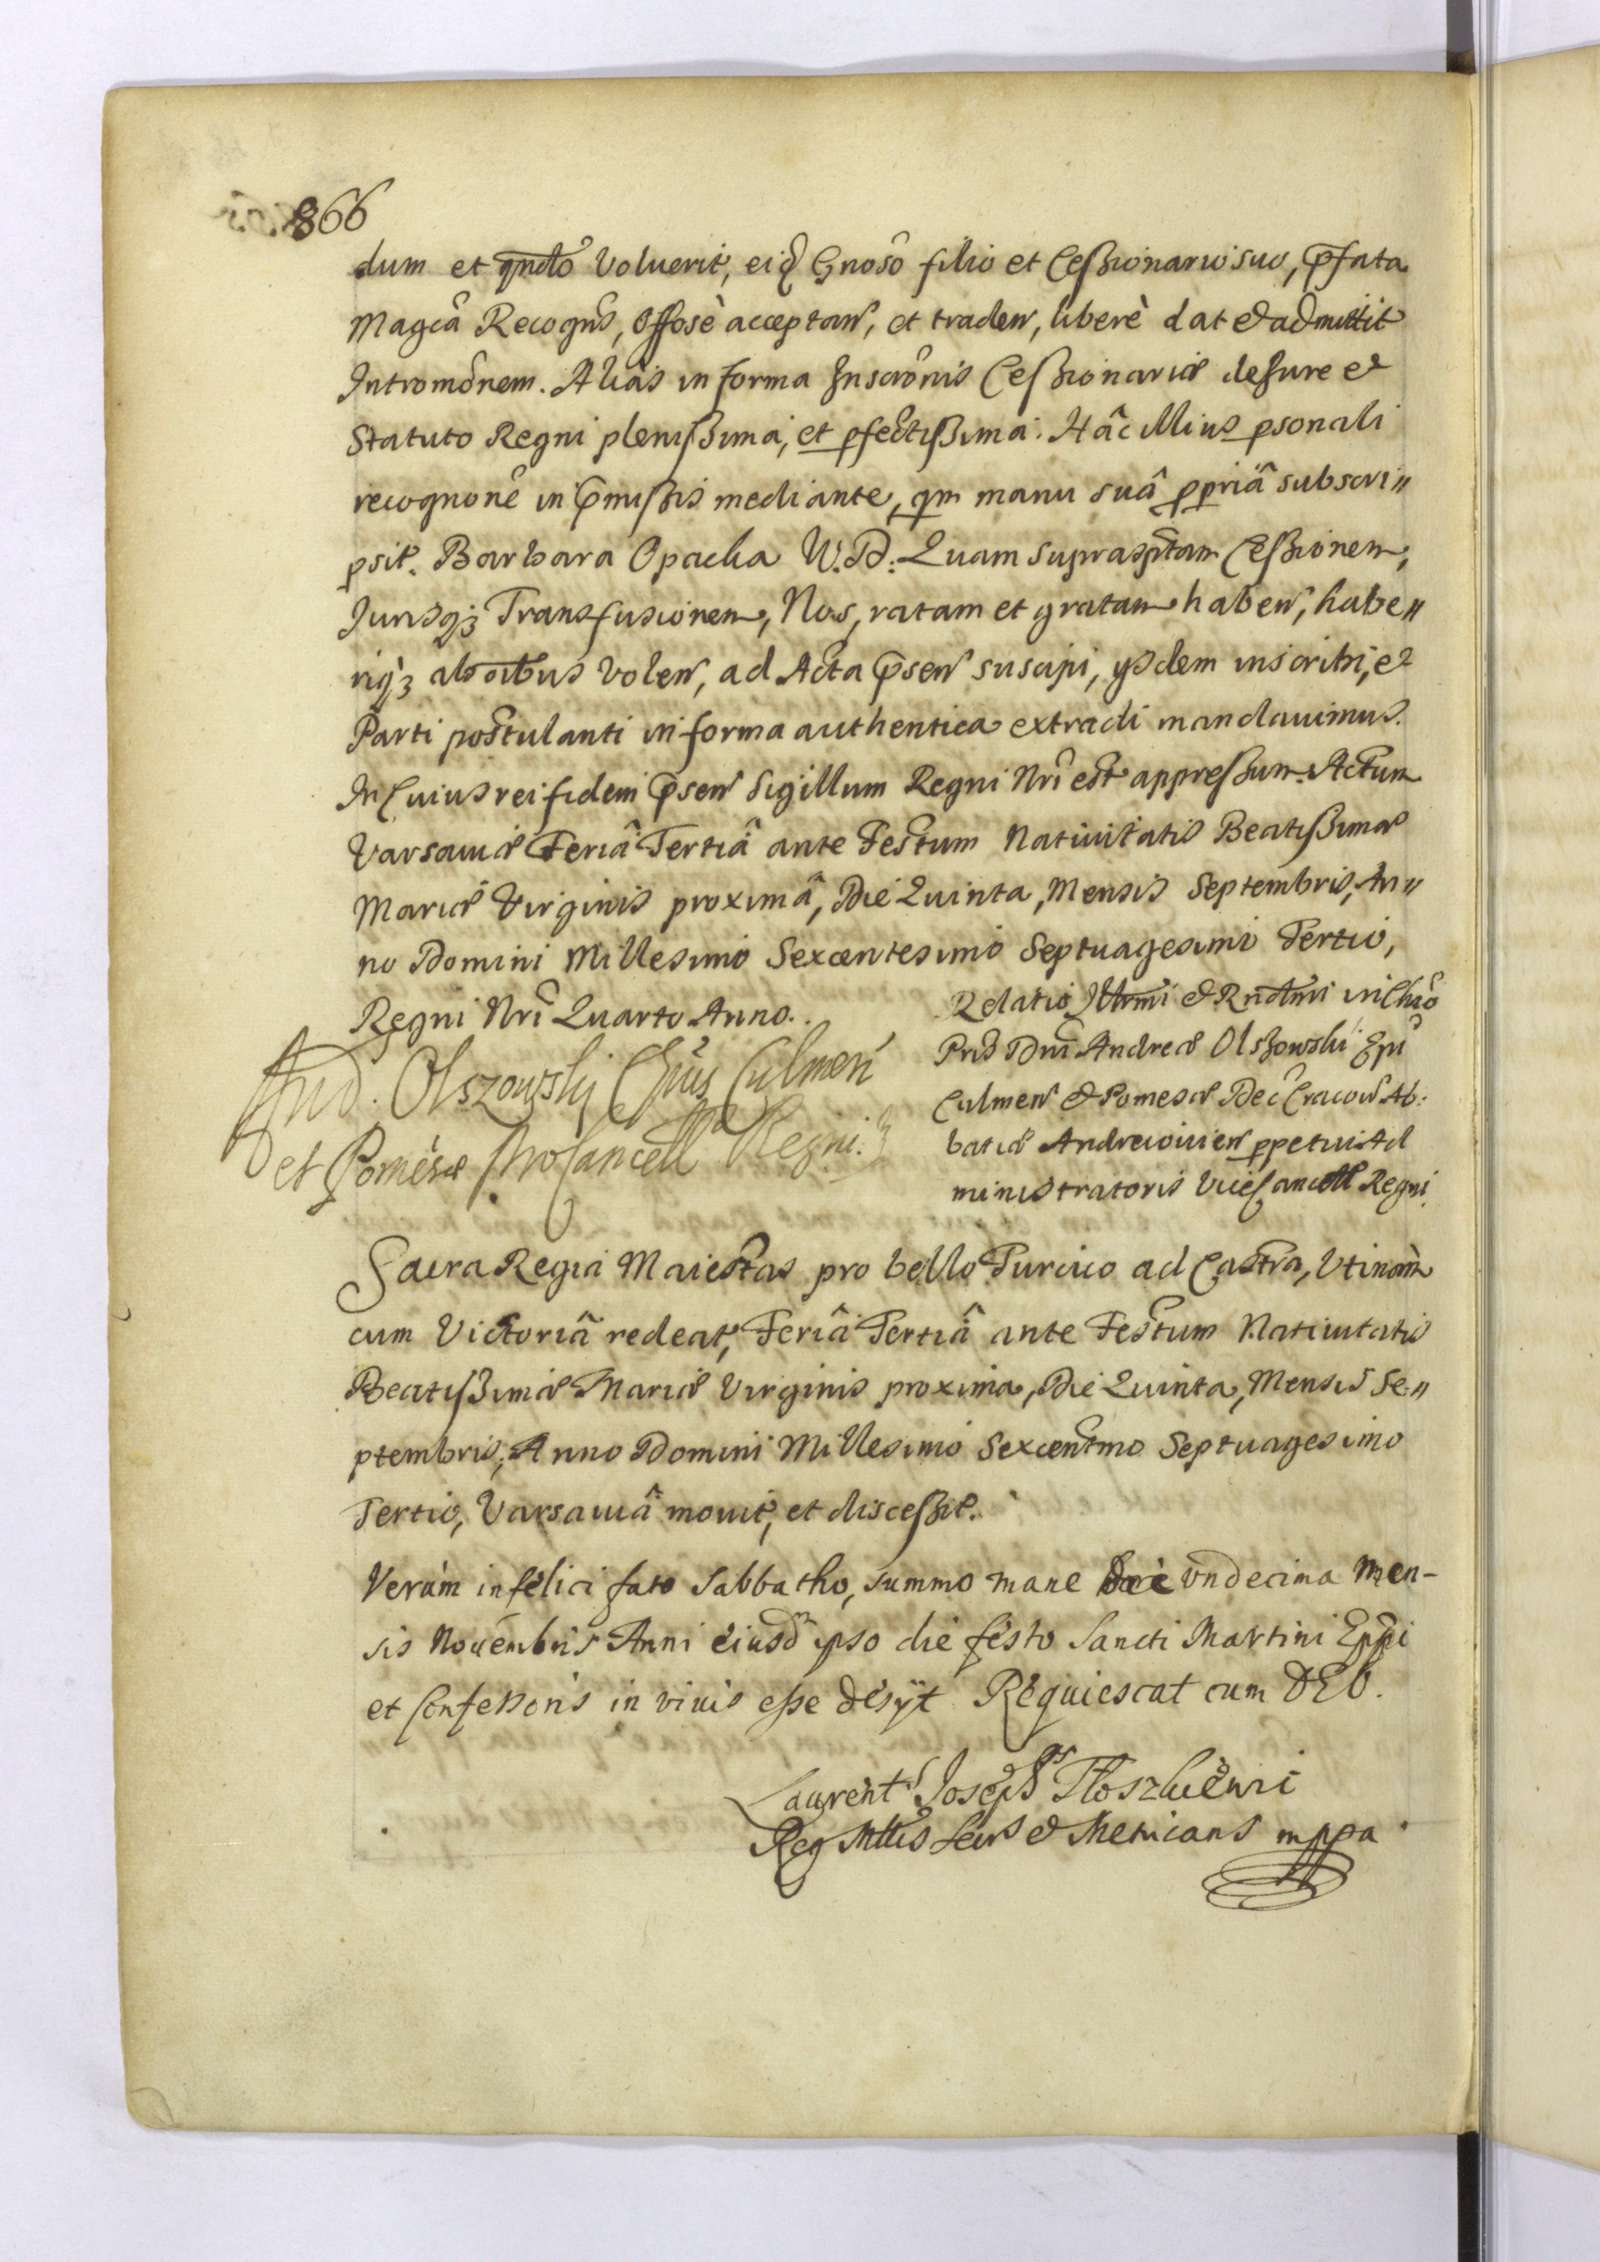 866
dum et qnđo Voluerit, eiđ Gnoso filio et Cessionario suo, p̄fata
Magcâ Recogns, Offosè acceptans, et tradens, liberè dat et admittit
Intromônem. Aliàs in forma Inscrônis Cessionariæ de Jure et
Statuto Regni plenissima, et pfectissima. Hâc illius psonali
recognone in p̄missis mediante, qm manu suâ ppriâ subscri〃
psit. Barbara Opacka W. P: Quam suprascptam Cessionem,
Jurisq3 Transfusionem, Nos, ratam et gratam habens, habe〃
riq3 ab oībus volens, ad Acta p̄sens suscipi, ysdem inscribi, et
Parti postulanti in forma authentica extradi mandauimus.
In Cuius rei fidem p̄sens Sigillum Regni Nrî est appressum. Actum
Varsauiæ Feriâ Tertiâ ante Festum Natiuitatis Beatissimæ
Mariæ Virginis proximâ, Die Quinta, Mensis Septembris, An〃
no Domini Millesimo Sexcentesimo Septuagesimo Tertio,
Regni Nrî Quarto Anno.
And. Olszowskj Epūs Culmen
et Pomesæ Procancell Regni.
Relatio Illrmi et Rndmi in Chrō
Pris Dnī Andreæ Olszowski Epī
Culmens et Pomesæ Dec Cracou Ab:
batiæ Andreiouiens ppetui Ad
ministratoris Vicecancell Regni.
Sacra Regia Maiestas pro bello Turcico ad Castra, Vtinàm
cum Victoriâ redeat, Feriâ Tertiâ ante Festum Natiuitatis
Beatissimæ Mariæ Virginis proxima, Die Quinta, Mensis Se〃
ptembris, Anno Domini Millesimo Sexcentmo Septuagesimo
Tertio, Varsauiâ mouit, et discessit.
Verùm infelici fato Sabbatho, summo mane Die vndecima Men-
sis Nouembris Anni eiusd ipso die festo Sancti Martini Eppi
et Confessoris in viuis esse desijt Requiescat cum DEO.
Laurent Joseph
Reg Mttis Secrs et Metricans mppa